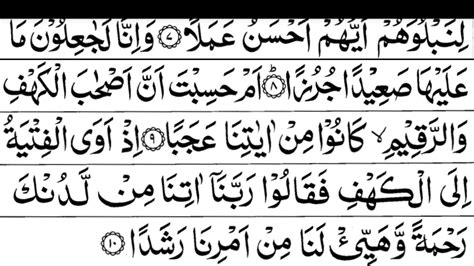 لِنَبْلُوَهُمْ اَيُّهُمْ اَحْسَنُ عَمَلًا ۝۷ وَاِنَّا لَجٰعِلُوْنَ مَا
عَلَيْهَا صَعِيْدًا جُرُزًا ۝۸ؕ اَمْ حَسِبْتَ اَنَّ اَصْحٰبَ الْكَهْفِ
وَالرَّقِيْمِ ۙ كَانُوْا مِنْ اٰيٰتِنَا عَجَبًا ۝۹ اِذْ اَوَى الْفِتْيَةُ
اِلَى الْكَهْفِ فَقَالُوْا رَبَّنَاۤ اٰتِنَا مِنْ لَّدُنْكَ
رَحْمَةً وَّهَيِّئْ لَنَا مِنْ اَمْرِنَا رَشَدًا ۝۱۰